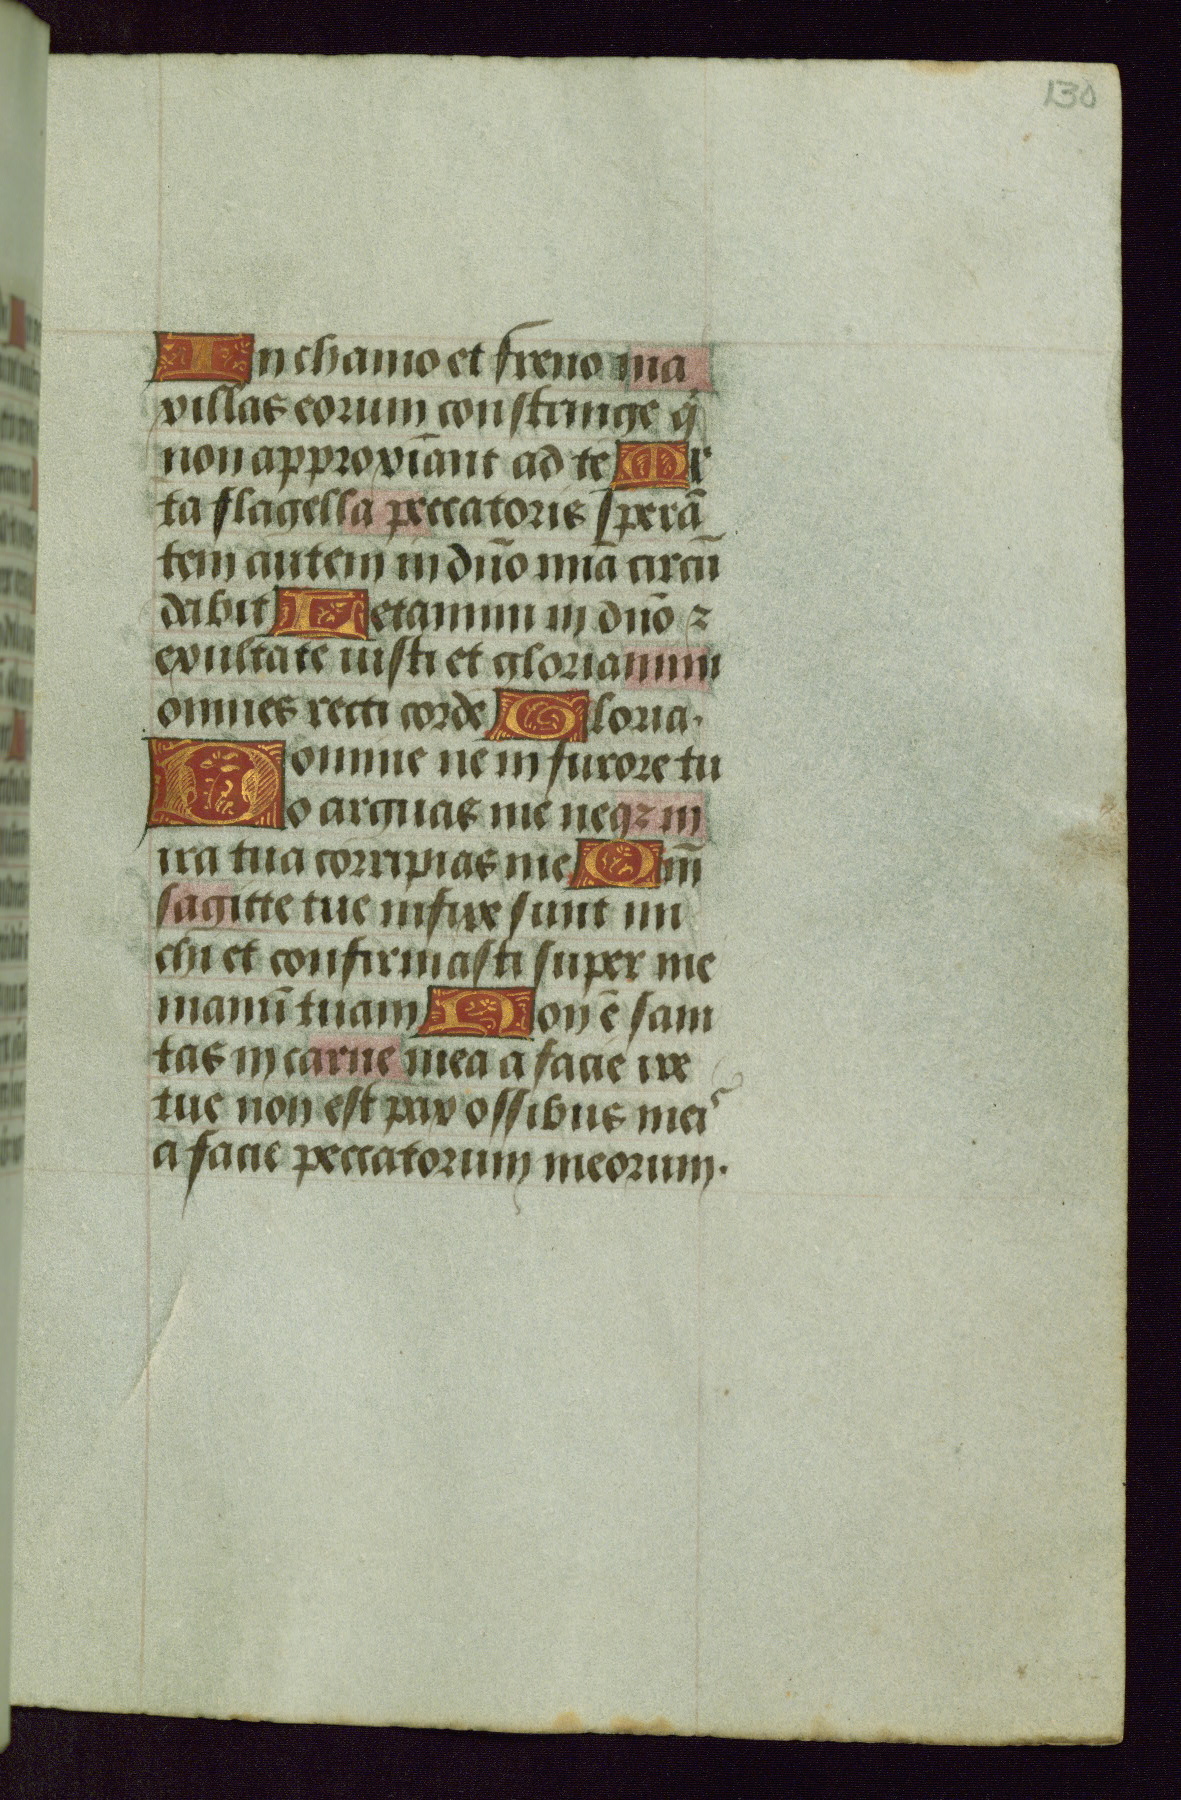 130
In chamo et freno ma
xillas eorum constringe q̄
non approxīant ad te Ml
ta flagella peccatoris sperā
tem autem in dn̄o mīa circū
dabit Letamini in dn̄o ⁊
exultate iusti et gloriamini
omnes recti corde Gloria.
Domine ne in furore tu
o arguas me neqꝫ in
ira tua corripias me Qm̄
sagitte tue infixe sunt mi
chi et confirmasti super me
manū tuam Non ē sani
tas in carne mea a facie ire
tue non est pax ossibus meis
a facie peccatorum meorum.